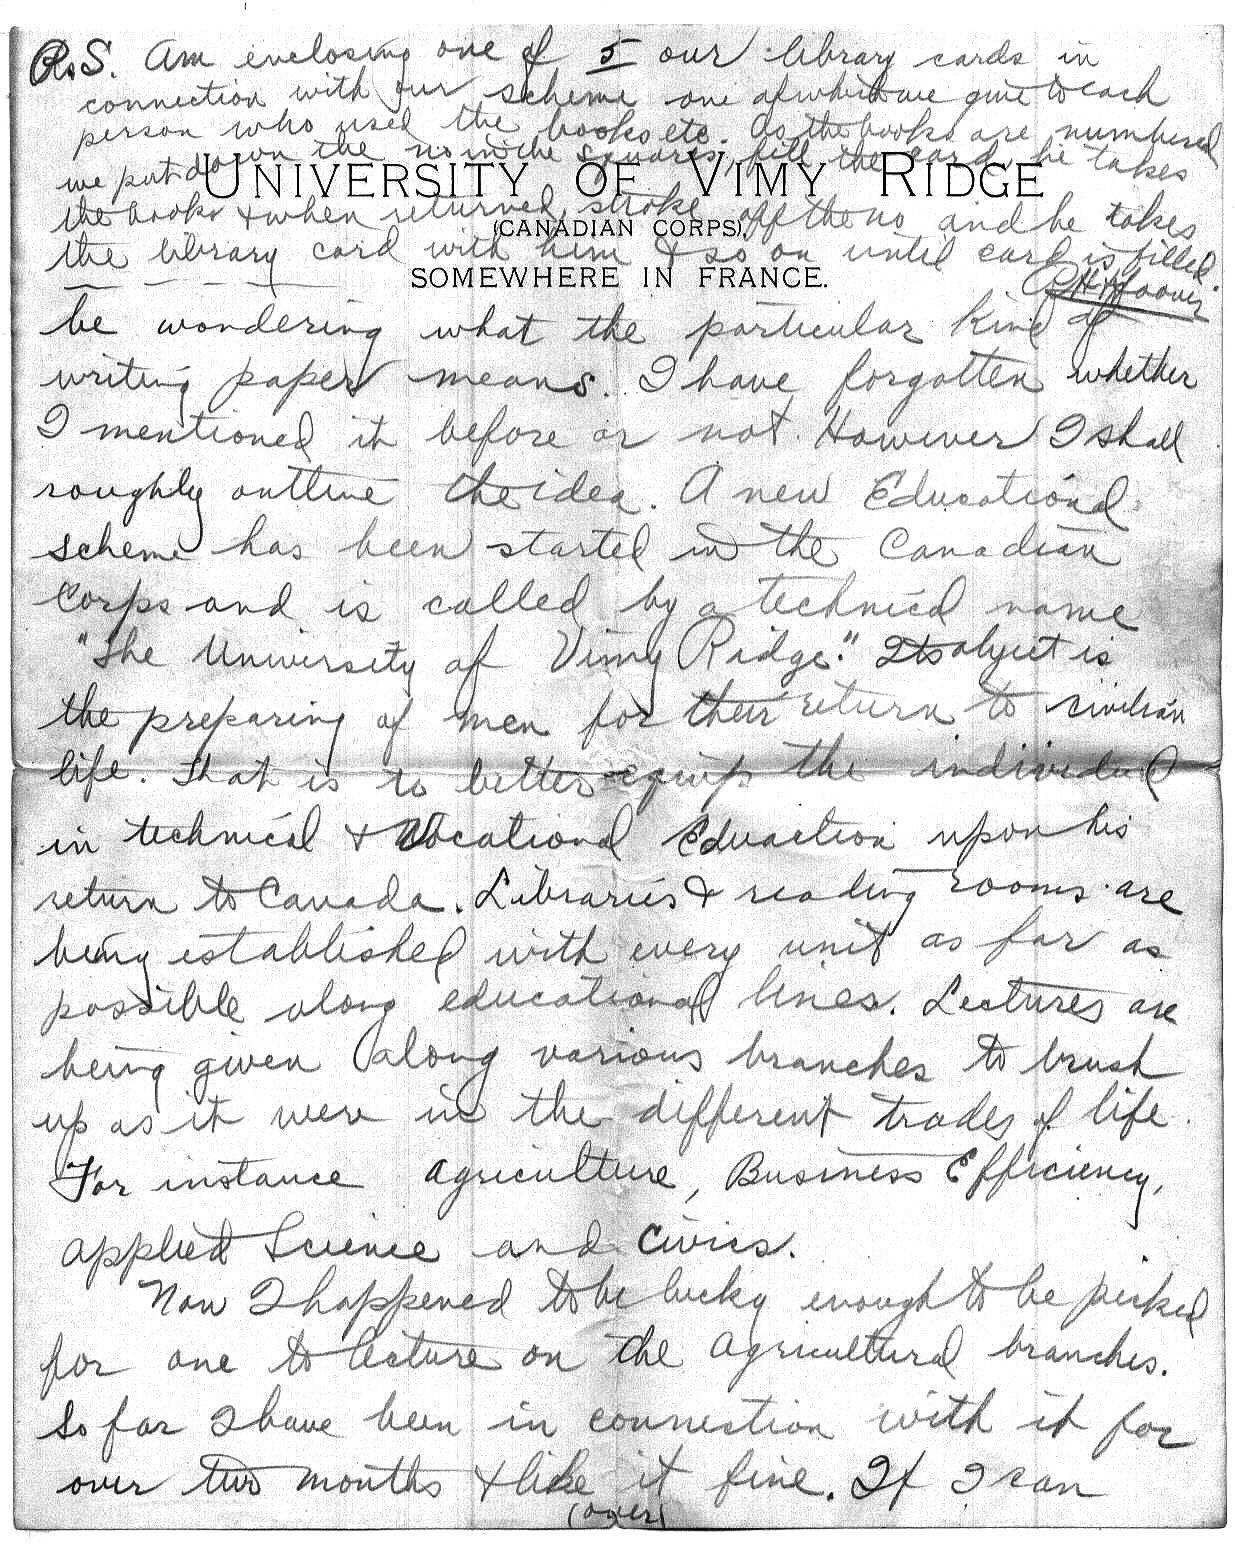 P.S. Am enclosing one of 5 our library cards in
connection with our scheme one of which we give to each
person who used the books etc. As the books are numbered
we put down the no in the squares, fill the card, he takes
the books & when returned, stroke off the no and he takes
the library card with him & so on until card is filled.
UNIVERSITY OF VIMY RIDGE
(CANADIAN CORPS),
SOMEWHERE IN FRANCE.
Hoover
be wondering what the particular kind of
writing paper means. I have forgotten whether
I mentioned it before or not. However I shall
roughly outline the idea. A new Educational
scheme has been started in the Canadian
Corps and is called by a technical name
"The University of Vimy Ridge". Its object is
the preparing of men for their return to civilian
life. That is to better equip the individual
in technical & Vocational Eduaction upon his
return to Canada. Libraries & reading rooms are
being established with every unit as far as
possible along educational lines. Lectures are
being given along various branches to brush
up as it were in the different trades of life.
For instance Agriculture, Business Efficiency,
Applied Science and Civics.
Now I happened to be lucky enough to be picked
for one to lecture on the Agricultural branches.
So far I have been in connection with it for
over two months & like it fine. If I can
(over)